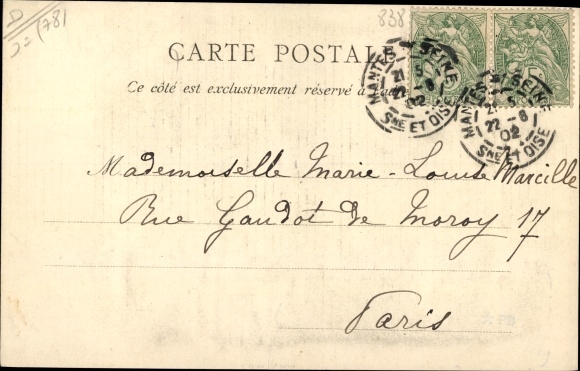 D
J = (78)
838
CARTE POSTALE
Ce côté est exclusivement réservé à l'a
MANTES S/ SEINE
21
5
22 - 8
02
SNE ET OISE
MANTES S/ SEINE
21
22 - 8
02
SNE ET OISE
Mademoiselle Marie-Louise Marcille
Rue Gaudot de Moroy 17
Paris